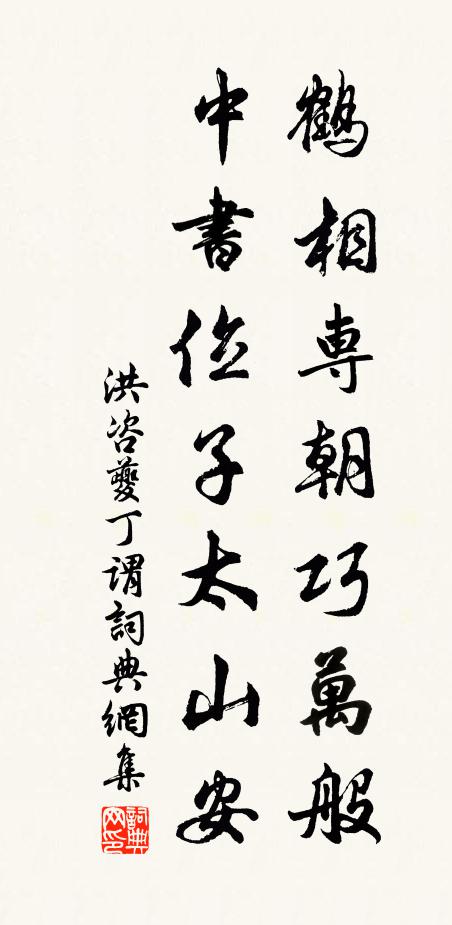 鶴相専朝巧萬般
中書位子太山安
洪咨夔丁謂詞典網集
詞典
网印